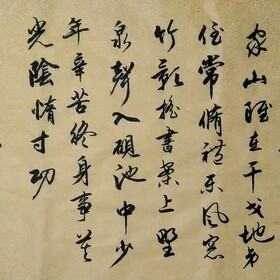 家山雖在干戈地弟
侄常脩禮樂風窓
竹影搖書案上野
泉聲入硯池中少
年辛苦終身事莫
光陰惰寸功